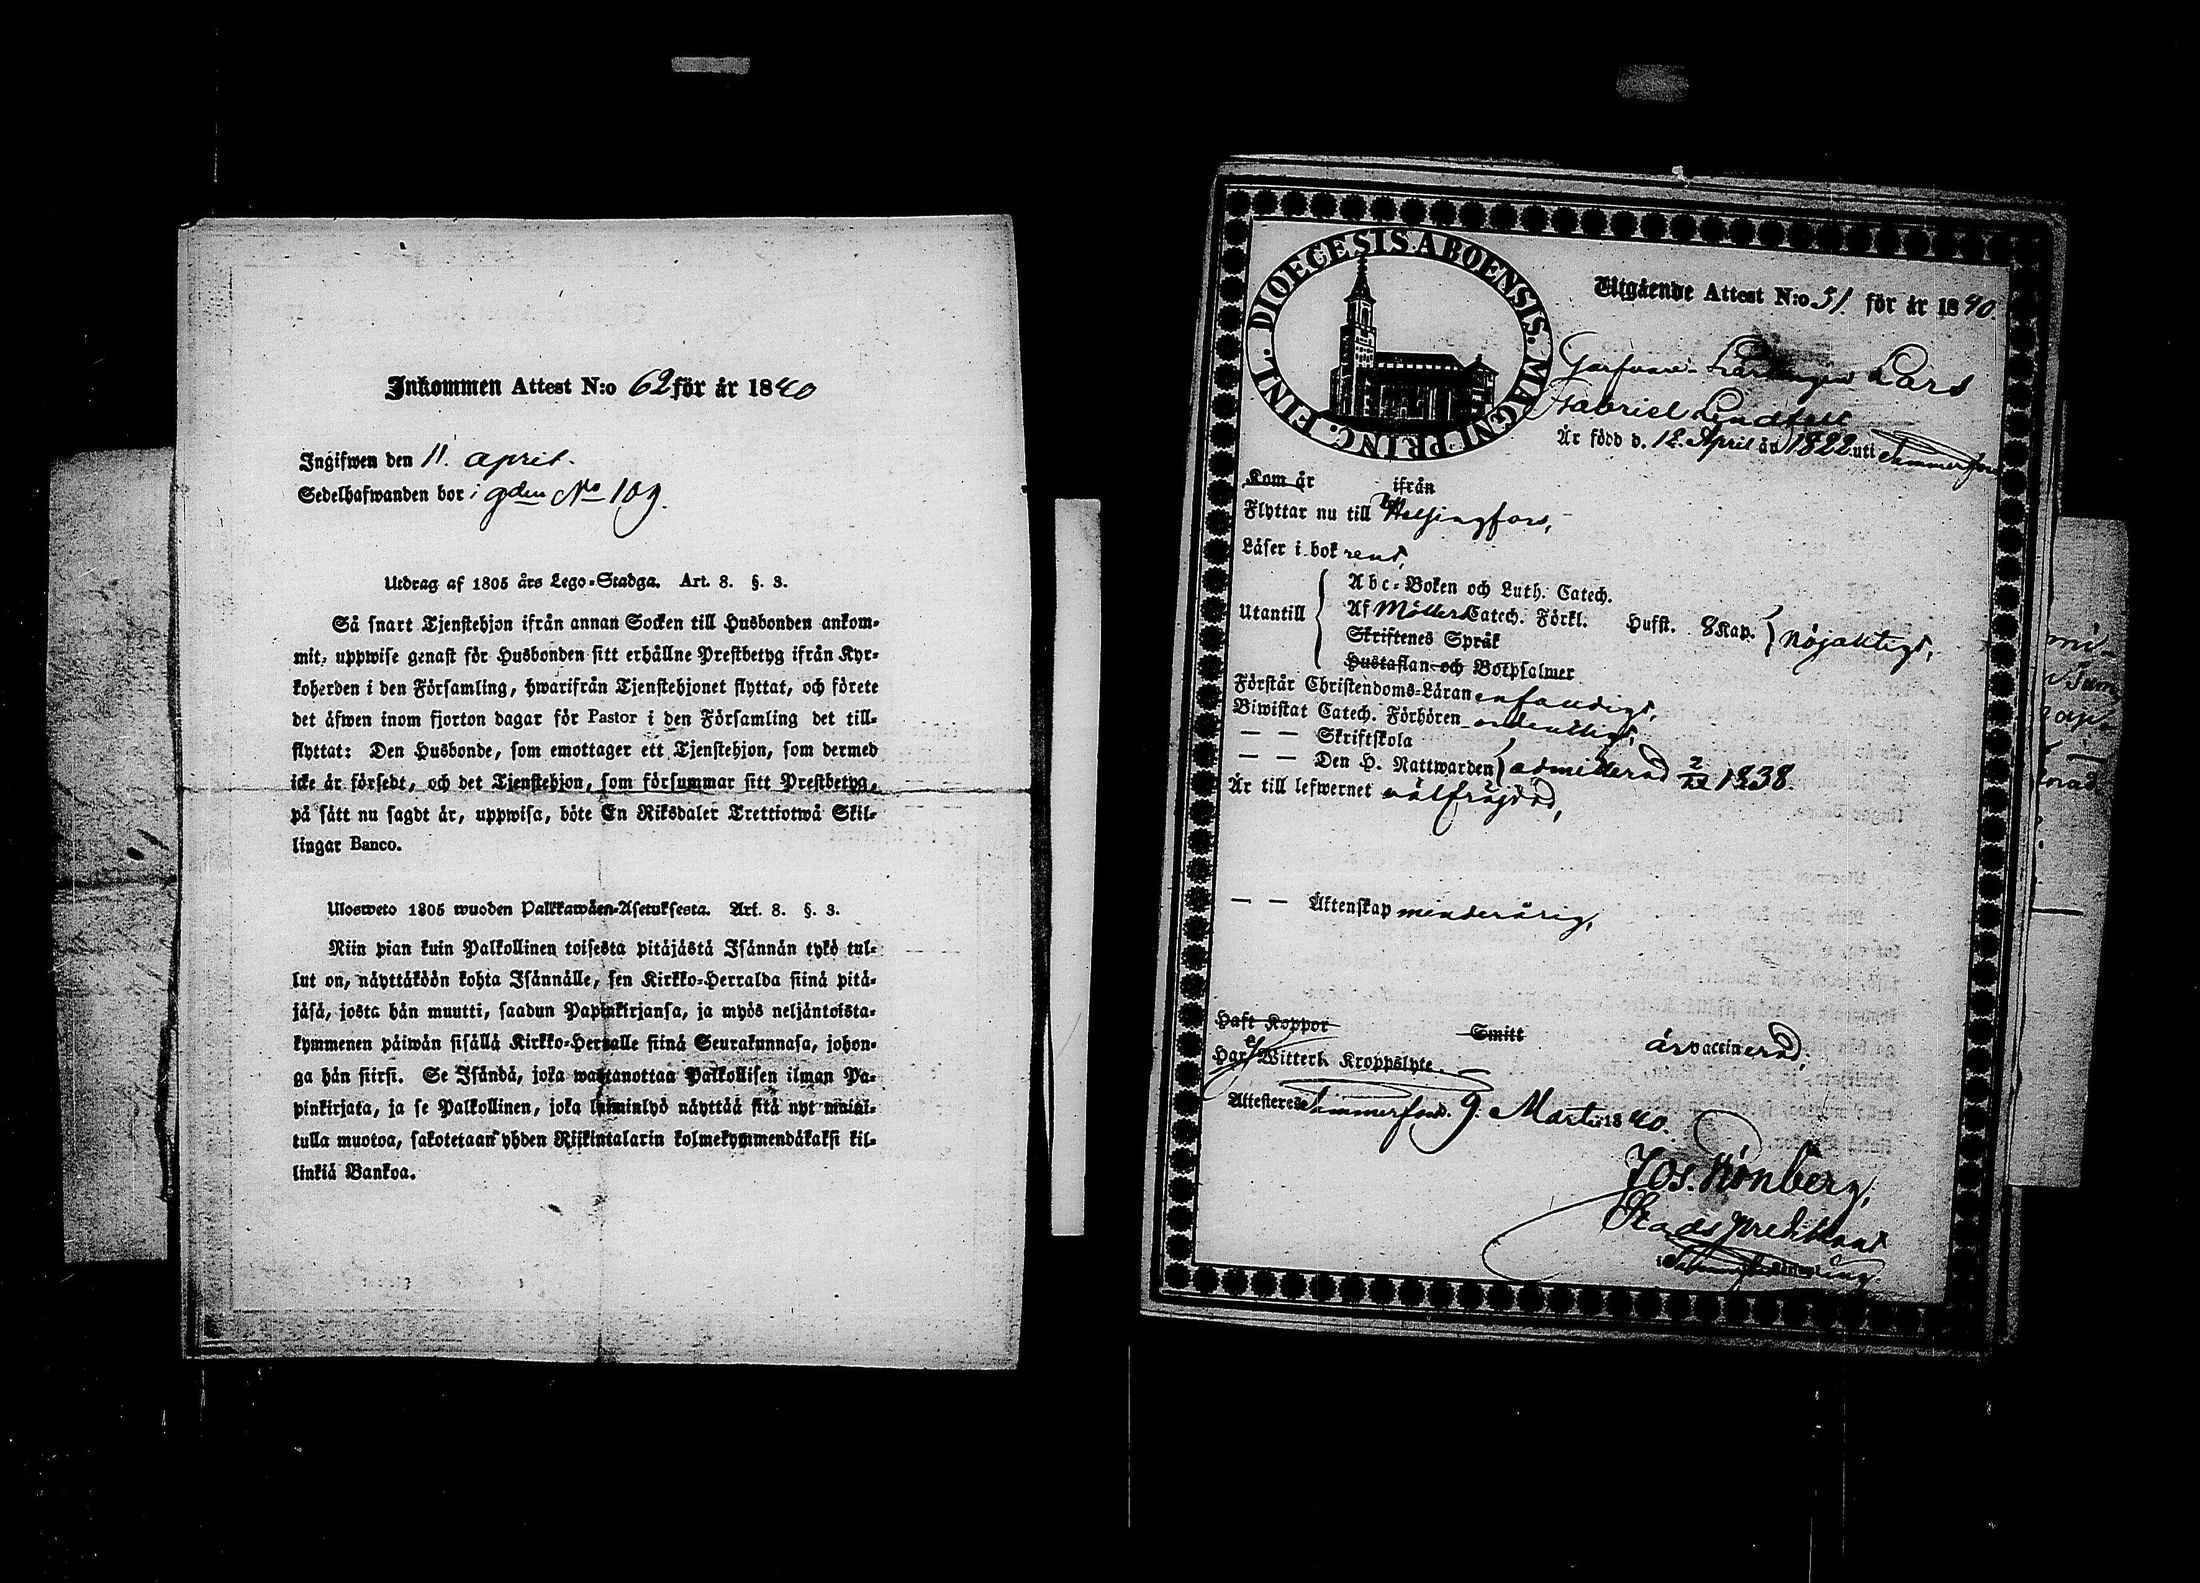 Inkommen Attest N:o 62 för år 1840
Ingifwen den 11. april.
Sedelhafwanden bor i gden No 109.
Utdrag af 1805 års Lego-Stadga. Art. 8. §. 3.
Så snart Tjenstehjon ifrån annan Socken till Husbonden ankom-
mit, uppwise genast för Husbonden sitt erhållne Prestbetyg ifrån Kyr-
koherden i den Församling, hwarifrån Tjenstehjonet flyttat, och förete
det äfwen inom fjorton dagar för Pastor i den Församling det till-
flyttat: Den Husbonde, som emottager ett Tjenstehjon, som dermed
icke är försedt, och det Tjenstehjon, som försummar sitt Prestbetyg,
på sätt nu sagdt är, uppwisa, böte En Riksdaler Trettiotwå Skil-
lingar Banco.
Ulosweto 1805 wuoden Palkkawäen-Asetuksesta. Art. 8. §. 3.
Niin pian kuin Palkollinen toisesta pitäjästä Isännän tykö tul-
lut on, näyttäköön kohta Isännälle, sen Kirkko-Herralda siinä pitä-
jäsä, josta hän muutti, saadun Papinkirjansa, ja myös neljäntoista-
kymmenen päiwän sisällä Kirkko-Herralle siinä Seurakunnasa, johon-
ga hän siirsi. Se Isändä, joka wastanottaa Palkollisen ilman Pa-
pinkirjata, ja se Palkollinen, joka laiminlyö näyttää sitä nyt mainit-
tulla muotoa, sakotetaan yhden Riikintalarin kolmekymmendäkaksi kil-
linkiä Bankoa.
DIOECESIS ABOENSIS. MAGNI PRINC. FINL.
Utgående Attest N:o 51. för år 1840
Garfvare Lärlingen Lars
Gabriel Lindstell
Är född d. 12. April år 1822 uti Tammerfors
Kom år ifrån
Flyttar nu till Helsingfors,
Läser i bok rent,
Utantill
Abc-Boken och Luth. Catech.
Af Möllers Catech. Förkl. Husst. 8 Kap. nöjaktigt,
Skriftenes Språk
Hustaflan och Botpsalmer
Förstår Christendoms-Läran enfaldigt,
Biwistat Catech. Förhören ordentligt,
— — Skriftskola
— — Den H. Nattwarden admitterad 1838.
Är till lefwernet välfrejdad,
— — Äktenskap minderårig,
Haft Koppor Smitt är vaccinerad,
Har Witterl. Kroppslyte.
Attesteres Tammerfors d. 9. Martii 1840.
Jos. Rönberg,
Stads predikant